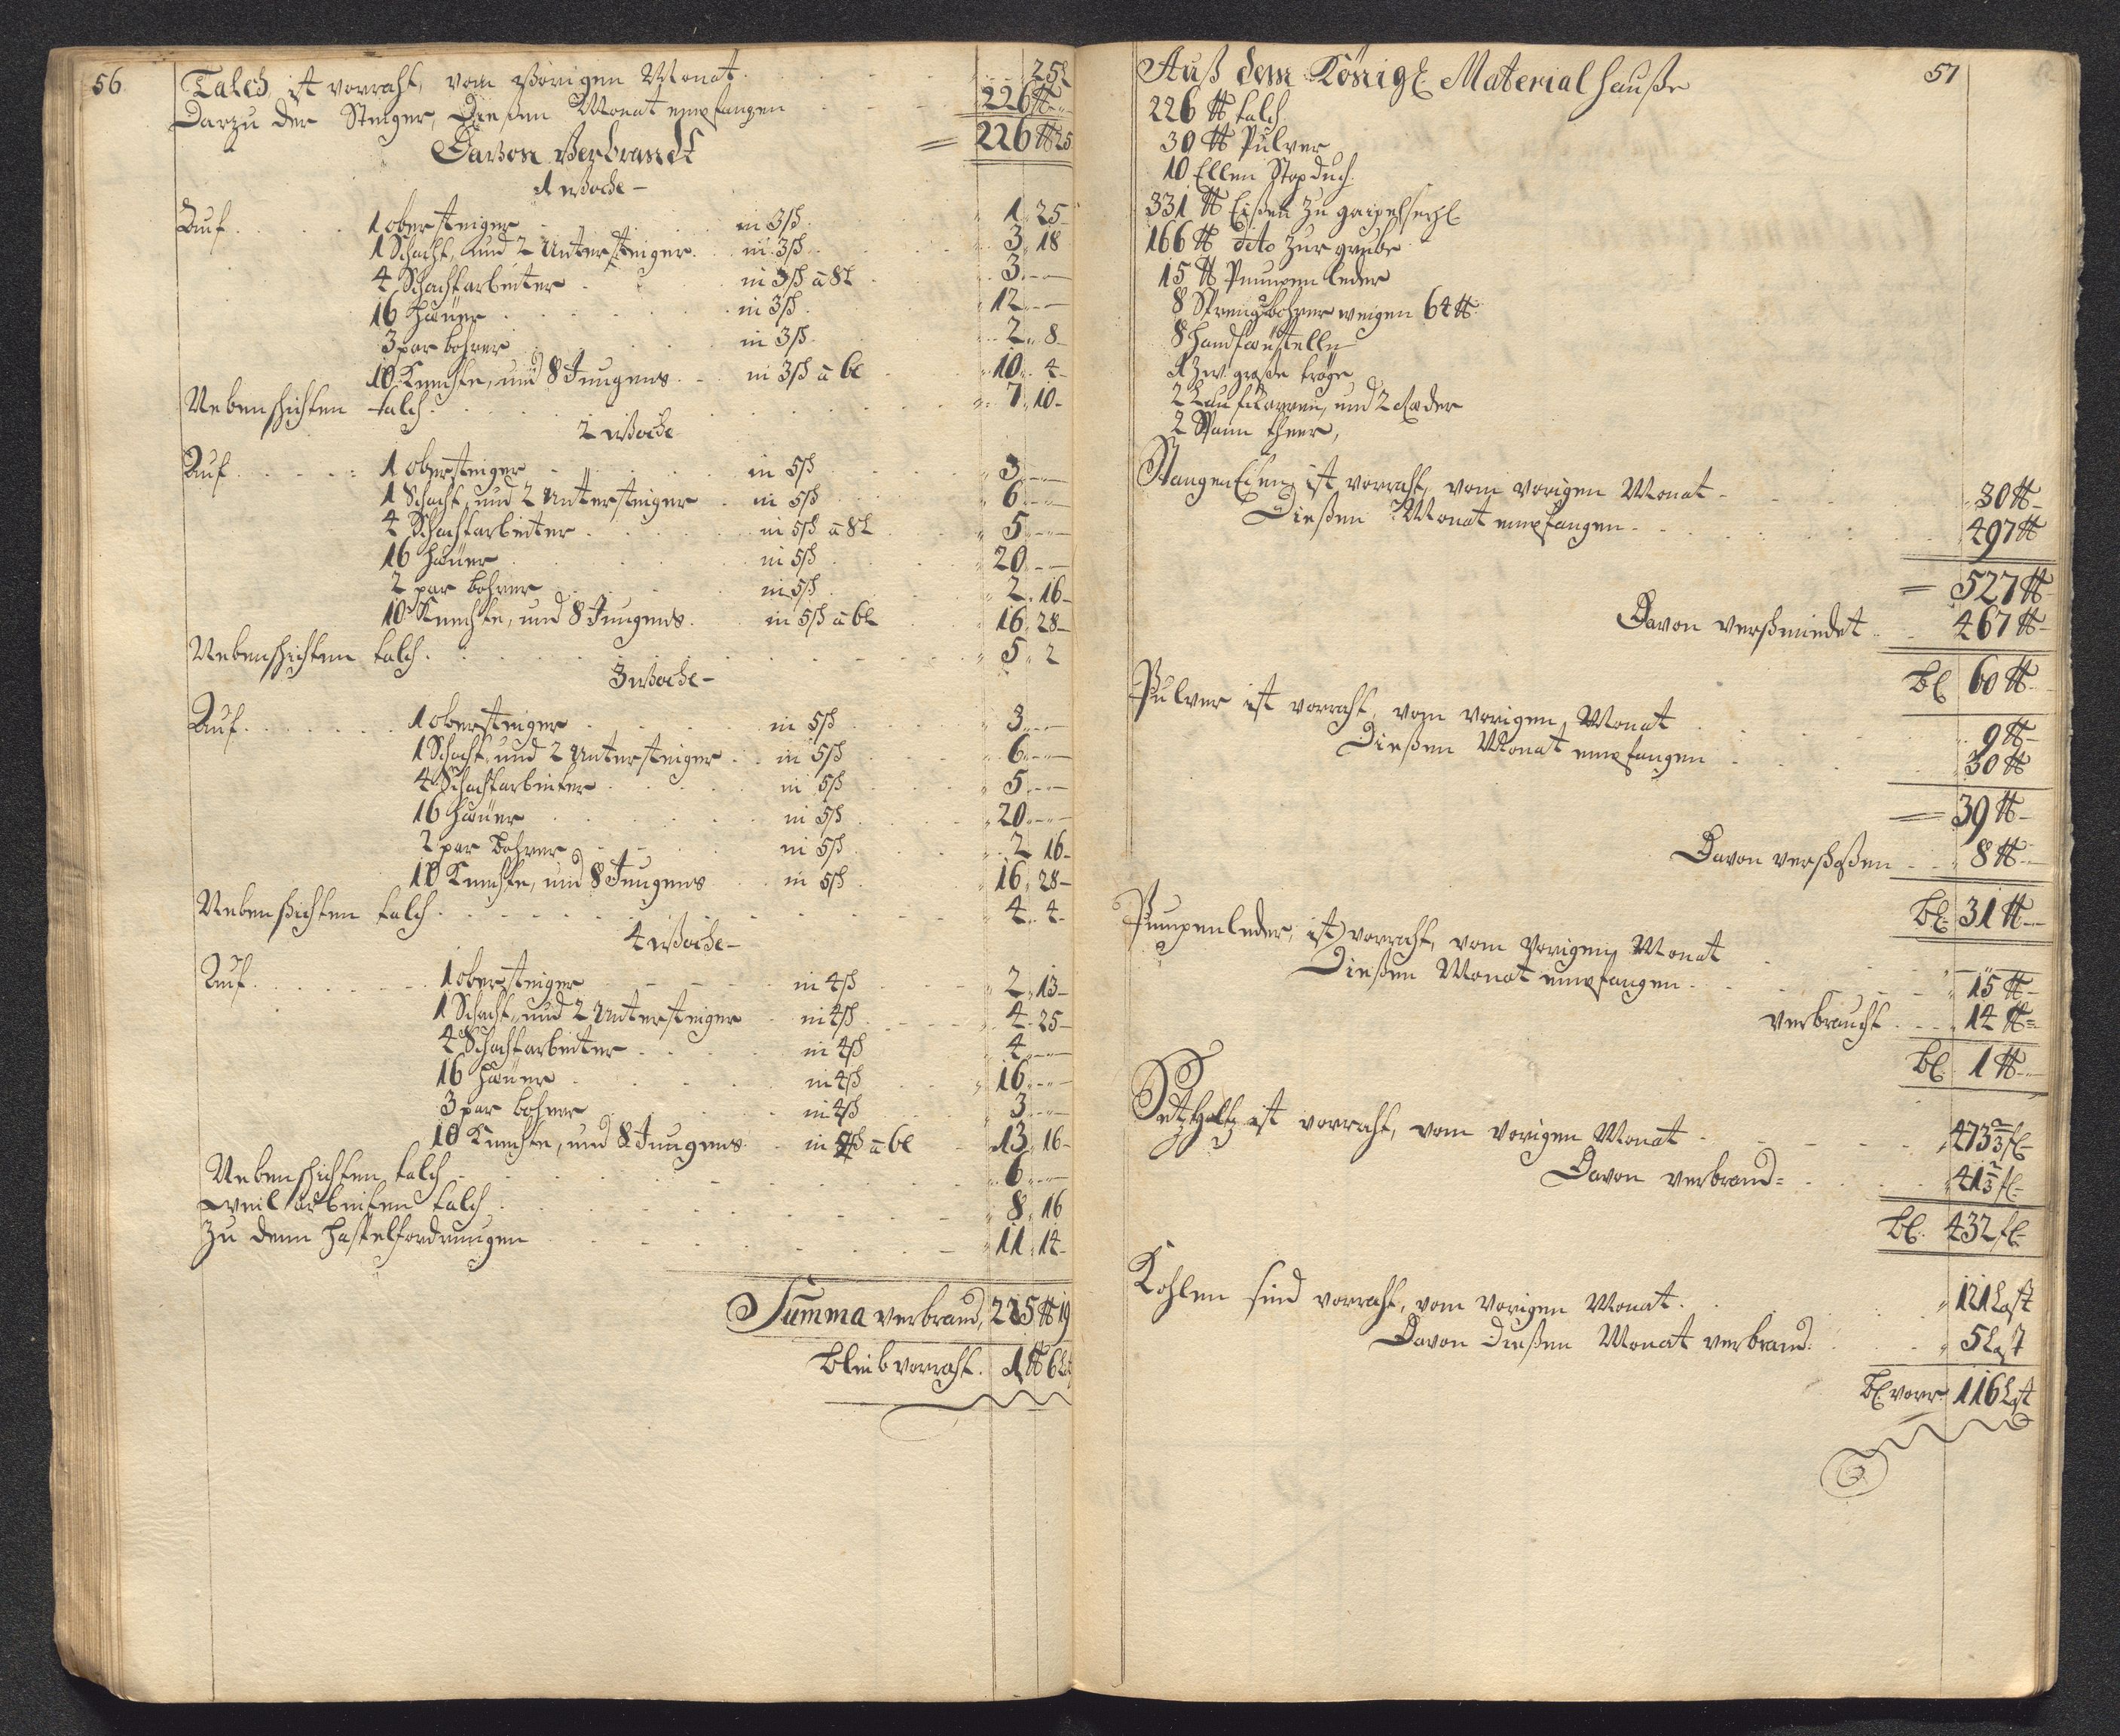 56
Talch ist vorraht, vom Vorigen Monat . . . 25 L
Darzu der Steiger, Dießen Monat empfangen . . . 226 ℔ „
= 226 ℔ 25
Davon Verbrandt
1 Woche –
Auf . . . 1 obersteiger . . . in 3 ß . . . 1 „ 25 –
1 Schacht, und 2 Untersteiger . . in 3 ß . . . 3 „ 18
4 Schachtarbeiter . . . in 3 ß a 8 L . . . 3 „ –
16 Häüer . . . in 3 ß . . . 12 „ –
3 par bohrer . . . in 3 ß . . . 2 „ 8 –
10 Knechte, und 8 Jungens . . in 3 ß a 6 L . . . 10 „ 4 –
Nebenschichten talch . . . 7 „ 10 –
2 Woche
Auf . . . 1 obersteiger . . . in 5 ß . . . 3 „ –
1 Schacht, und 2 Untersteiger . . in 5 ß . . . 6 „ –
4 Schachtarbeiter . . . in 5 ß a 8 L . . . 5 „ –
16 Häüer . . . in 5 ß . . . 20 „ –
2 par bohrer . . . in 5 ß . . . 2 „ 16 –
10 Knechte, und 8 Jungens . . in 5 ß a 6 L . . . 16 „ 28 –
Nebenschichten talch . . . 5 „ 2
3 Woche –
Auf . . . 1 obersteiger . . . in 5 ß . . . 3 „ –
1 Schacht, und 2 Untersteiger . . in 5 ß . . . 6 „ –
4 Schachtarbeiter . . . in 5 ß . . . 5 „ –
16 Häüer . . . in 5 ß . . . 20 „ –
2 par Bohrer . . . in 5 ß . . . 2 „ 16 –
10 Knechte, und 8 Jungens . . in 5 ß . . . 16 „ 28 –
Nebenschichten talch . . . 4 „ 4 –
4 Woche –
Auf . . . 1 obersteiger . . . in 4 ß . . . 2 „ 13 –
1 Schacht, und 2 Untersteiger . . in 4 ß . . . 4 „ 25 –
4 Schachtarbeiter . . . in 4 ß . . . 4 „ –
16 Häüer . . . in 4 ß . . . 16 „ –
3 par bohrer . . . in 4 ß . . . 3 „ –
10 Knechte, und 8 Jungens . . in 4 ß a 6 L . . . 13 „ 16 –
Nebenschichten talch . . . 6 „ –
weil arbeiten talch . . . 8 „ 16
Zu denn haspelfordrungen . . . 11 „ 14 –
Summa verbrand, 225 ℔ 19
bleib vorraht . 1 ℔ 6 L
57
Auß dem Königl Material hauße
226 ℔ talch
30 ℔ Pulver
10 Ellen Stop duch
331 ℔ Eißen Zu
166 ℔ dito Zur grube
15 ℔ Pumpen leder
8 Sprengbohrer weigen 64 ℔
8 handfäustelln
große tröge
2 Lauf karren, und 2 Räder
2 Spann theer,
Stangen Eisen ist vorraht, vom vorigen Monat . . . 30 ℔ –
Dießen Monat empfangen . . . 497 ℔
= 527 ℔
Davon verschmiedet . . 467 ℔ –
bl 60 ℔
Pulver ist vorraht, vom vorigen Monat . . . 9 ℔ –
Dießen Monat empfangen . . . 30 ℔
= 39 ℔ –
Davon verschoßen . . . 8 ℔
bl 31 ℔
Pumpenleder, ist vorraht, vom Vorigen Monat . . .
Dießen Monat empfangen . . . 15 ℔ –
verbraucht . . . 14 ℔ =
bl. 1 ℔
Setzholtz ist vorraht, vom Vorigen Monat . . . 473 2/3 fl –
Davon verbrand = . . . 41 2/3 fl =
bl. 432 fl –
Kohlen sind vorraht, vom Vorigen Monat . . . 121 Last
Davon Dießen Monat verbrand: . . . 5 Last
bl vorr. 116 Last